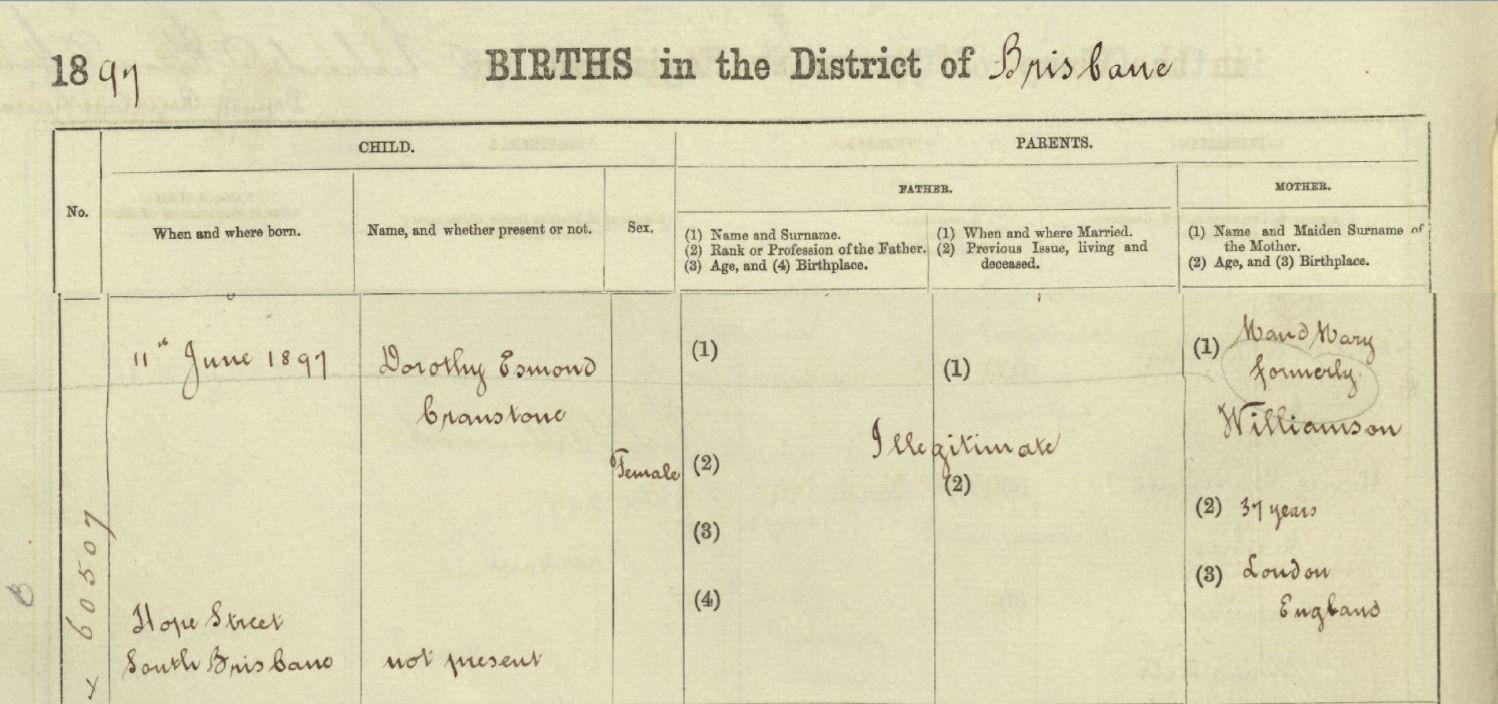 1897
BIRTHS in the District of Brisbane
No.
CHILD.
When and where born.
Name, and whether present or not.
Sex.
PARENTS.
FATHER.
(1) Name and Surname.
(2) Rank or Profession of the Father.
(3) Age, and (4) Birthplace.
(1) When and where Married.
(2) Previous Issue, living and
deceased.
MOTHER.
(1) Name and Maiden Surname of
the Mother.
(2) Age, and (3) Birthplace.
60507
11th June 1897
Hope Street
South Brisbane
Dorothy Esmond
Cranstone
not present
Female
(1)
(2)
(3)
(4)
Illegitimate
(1)
(2)
(1) Maud Mary
formerly
Williamson
(2) 37 years
(3) London
England